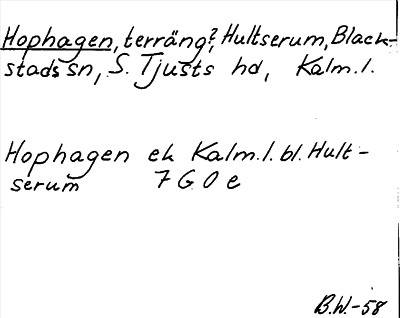 Hophagen, terräng?, Hultserum, Black-
stads sn, S. Tjusts hd, Kalm.l.
Hophagen ek Kalm.l. bl. Hult-
serum 7 G 0 e
B.W.-58